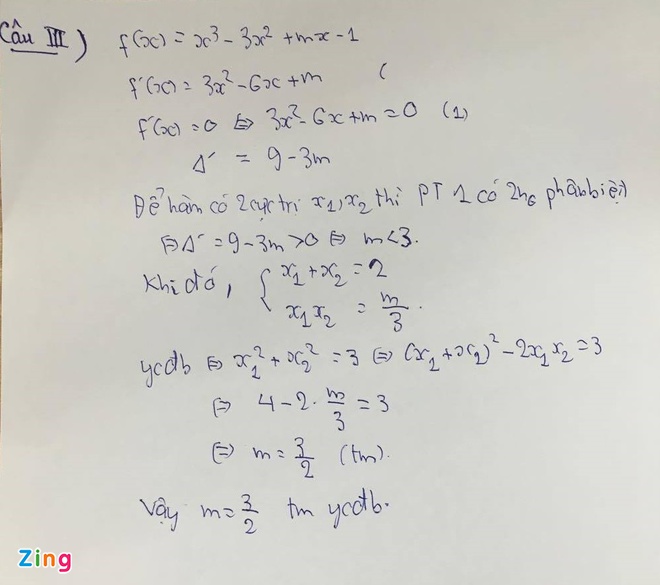 Câu III) f(x) = x³ - 3x² + mx - 1
f'(x) = 3x² - 6x + m (
f'(x) = 0 ⇔ 3x² - 6x + m = 0 (1)
Δ' = 9 - 3m
Để hàm có 2 cực trị x₁, x₂ thì PT 1 có 2 n₀ phân biệt)
⇔ Δ' = 9 - 3m > 0 ⇔ m < 3.
Khi đó, { x₁ + x₂ = 2
x₁x₂ = m/3.
ycđb ⇔ x₁² + x₂² = 3 ⇔ (x₁ + x₂)² - 2x₁x₂ = 3
⇔ 4 - 2 · m/3 = 3
⇔ m = 3/2 (tm).
Vậy m = 3/2 tm ycđb.
Zing